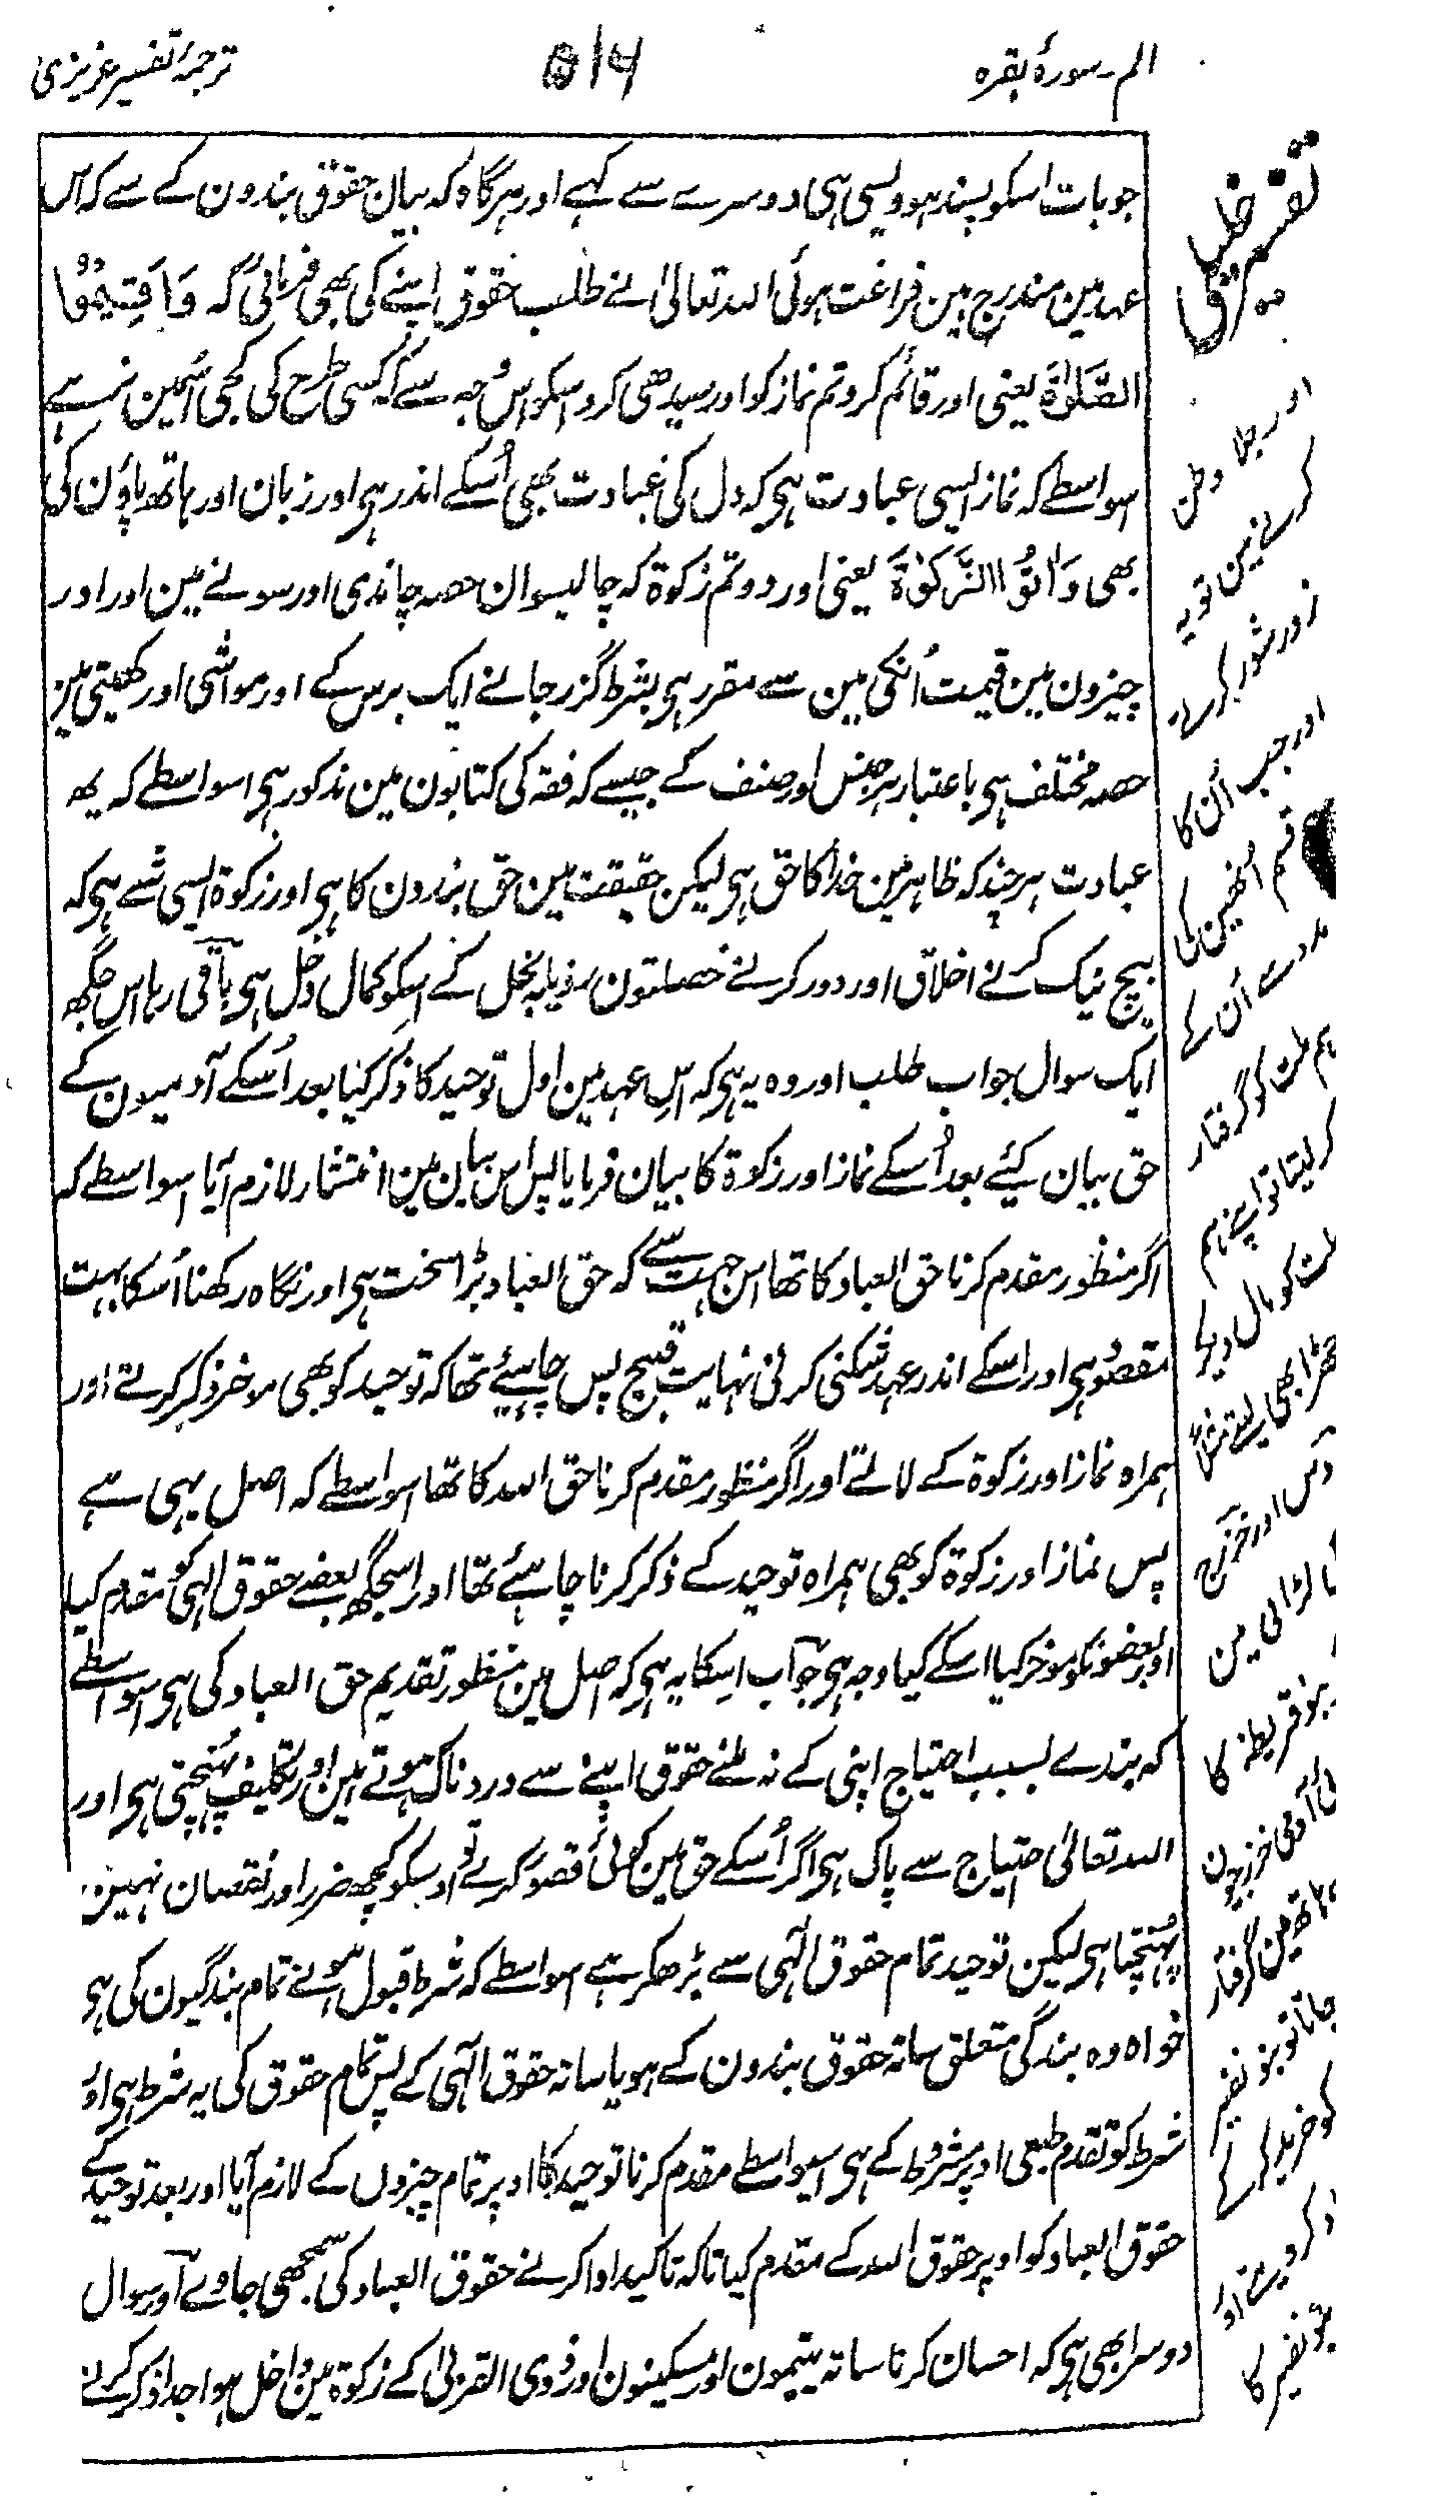 الم۔ سورۂ بقرہ
۵۱۶
ترجمۂ تفسیر عزیزی
جو بات اسکو پسند ہو ویسی ہی دوسرے سے کہے اور ہرگاہ کہ بیان حقوق بندون کے سے کہ اس
عہد مین مندرج ہین فراغت ہوئی اللہ تعالیٰ نے طلب حقوق اپنے کی بھی فرمائی کہ وَاَقِیْمُوا
الصَّلٰوۃَ یعنی اور قائم کرو تم نماز کو اور سیدھی کرو اسکو اس وجہ سے کہ کسی طرح کی کجی اُسمین نرہے
اسواسطے کہ نماز ایسی عبادت ہی کہ دل کی عبادت بھی اُسکے اندر ہی اور زبان اور ہاتھ پاؤن کی
بھی وَاٰتُوا الزَّکٰوۃَ یعنی اور دو تم زکوۃ کہ چالیسوان حصہ چاندی اور سونے مین اور اور
چیزون مین قیمت اُنکی مین سے مقرر ہی بشرط گزر جانے ایک برس کے اور مواشی اور کھیتی مین
حصہ مختلف ہی باعتبار ہر جنس اور صنف کے جیسے کہ فقہ کی کتابون مین مذکور ہی اسواسطے کہ یہ
عبادت ہر چند کہ ظاہر مین خدا کا حق ہی لیکن حقیقت مین حق بندون کا ہی اور زکوۃ ایسی شے ہی کہ
بیچ نیک کرنے اخلاق اور دور کرنے خصلتون رذیلہ بخل کے اسکو کمال دخل ہی باقی رہا اس جگھ
ایک سوال جواب طلب اور وہ یہ ہی کہ اس عہد مین اول توحید کا ذکر کیا بعد اُسکے آدمیون کے
حق بیان کیئے بعد اُسکے نماز اور زکوۃ کا بیان فرمایا پس اس بیان مین انتشار لازم آیا اسواسطے کہ
اگر منظور مقدم کرنا حق العباد کا تھا اس جہت سے کہ حق العباد بڑا سخت ہی اور نگاہ رکھنا اُسکا بہت
مقصود ہی اور اسکے اندر عہد شکنی کرنی نہایت قبیح پس چاہیئے تھا کہ توحید کو بھی موخر ذکر کرتے اور
ہمراہ نماز اور زکوۃ کے لاتے اور اگر منظور مقدم کرنا حق اللہ کا تھا اسواسطے کہ اصل یہی ہے
پس نماز اور زکوۃ کو بھی ہمراہ توحید کے ذکر کرنا چاہیئے تھا اور اسجگھ بعضے حقوق الہی کو مقدم کیا
اور بعضونکو موخر کیا اسکے کیا وجہ ہی جواب اسکا یہ ہی کہ اصل مین منظور تقدیم حق العباد کی ہی اسواسطے
کہ بندے بسبب احتیاج اپنی کے نہ ملنے حقوق اپنے سے دردناک ہوتے ہین اور تکلیف پہنچتی ہی اور
اللہ تعالیٰ احتیاج سے پاک ہی اگر اُسکے حق مین کوئی قصور کرے تو اوسکو کچھ ضرر اور نقصان نہین
پہنچتا ہی لیکن توحید تمام حقوق الٰہی سے بڑھکر ہے اسواسطے کہ شرط قبول ہونے تمام بندگیون کی ہی
خواہ وہ بندگی متعلق ساتھ حقوق بندون کے ہو یا ساتھ حقوق الٰہی کے پس تمام حقوق کی یہ شرط ہی اور
شرط کو تقدم طبعی اوپر مشروط کے ہی اسیواسطے مقدم کرنا توحید کا اوپر تمام چیزوں کے لازم آیا اور بعد توحید کے
حقوق العباد کو اوپر حقوق اللہ کے مقدم کیا تاکہ تاکید ادا کرنے حقوق العباد کی سمجھی جاوے اور سوال
دوسرا بھی ہی کہ احسان کرنا ساتھ یتیمون اور مسکینون اور ذوی القربیٰ کے زکوۃ مین داخل ہوا جدا ذکر کرنے
اور جلا وطن
کرنے مین تو یہ
زور شور
اور جب اُن کا
قسم اُنھین
مدد سے اُن
ہم
کو گرفتار
کر لیتا تو اپنے ہم
کو مال دیکر
چھڑا بھی لیتے
اوس اور خزرج
لڑائی مین
بنو قریظہ کا
آدمی خزرجیون
ہاتھ مین گرفتار
جاتا تو بنو نضیر
کو خرید کر کے
کر دیتے اور
بنو نضیر کا